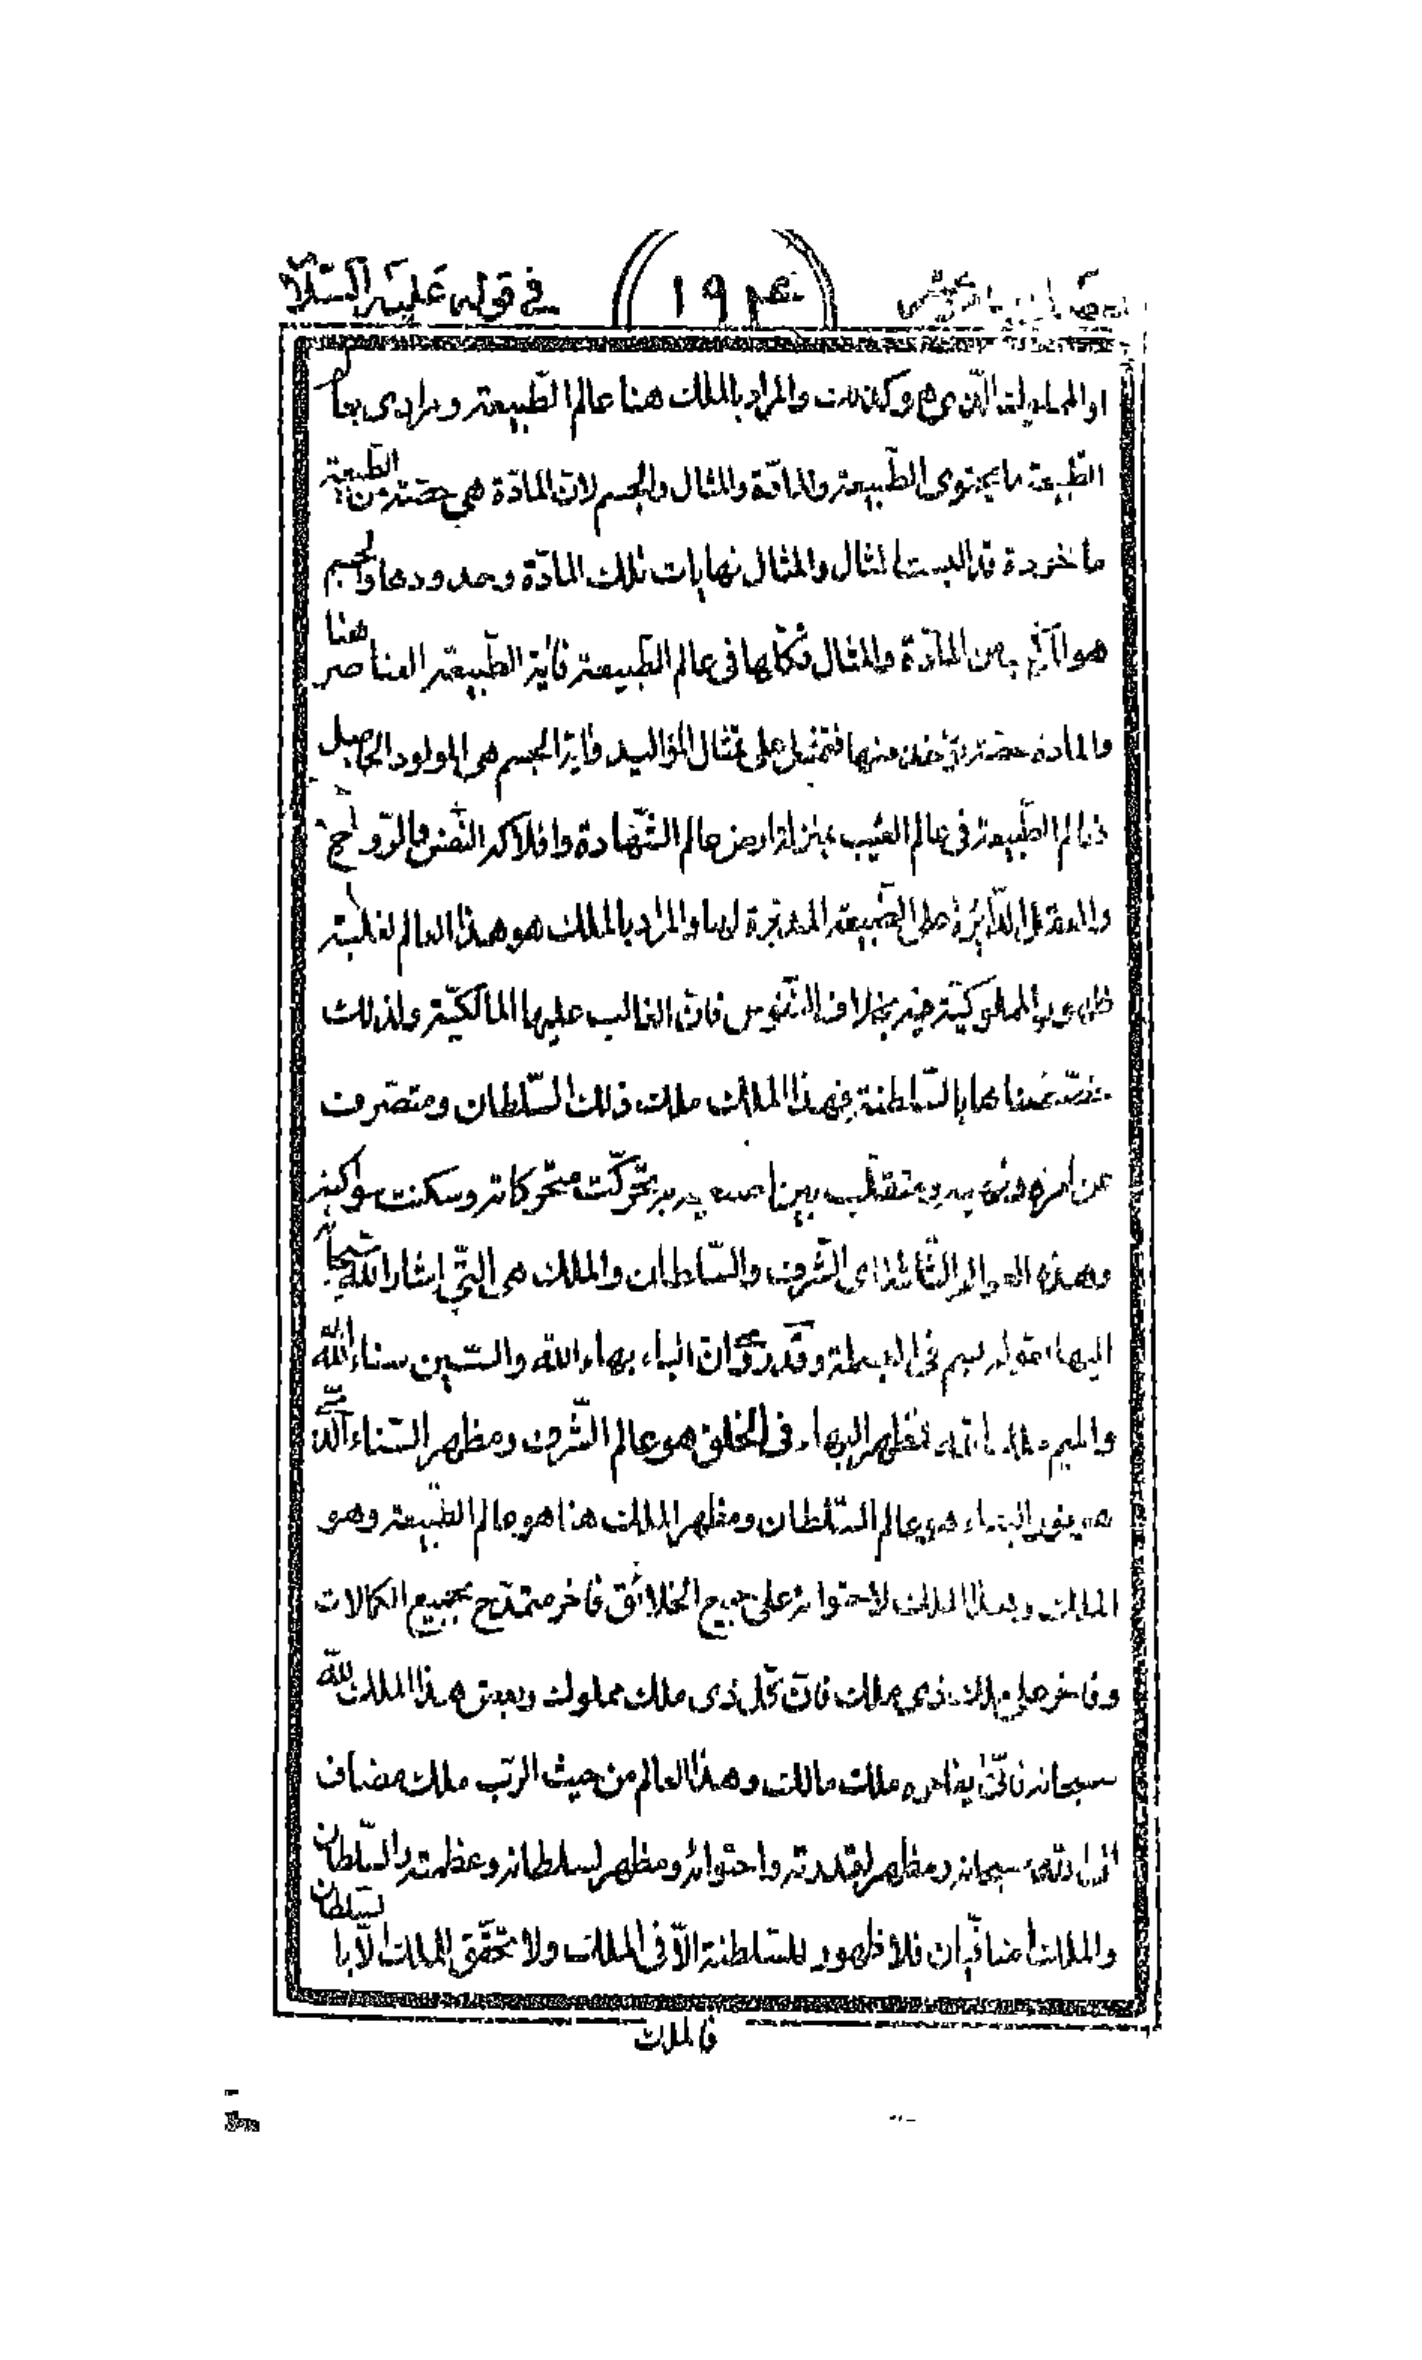 في قوله عليه السلام
١٩٤
او المملوك الذي هو كذلك والمراد بالملك هنا عالم الطّبيعة ومرادي بعالم
الطّبيعة ما يحتوي الطّبيعة والمادّة والمثال والجسم لانّ المادّة هي حصّة من الطّبيعة
ماخوذة قد البست المثال والمثال نهايات تلك المادّة وحدودها والجسم
هو المركّب من المادّة والمثال فكلّها في عالم الطّبيعة فاية الطّبيعة العناصر هنا
والمادة حصّة يؤخذ منها فتمثيل على تمثال المواليد واية الجسم هي المولود الحاصل
فعالم الطّبيعة في عالم الغيب بمنزلة ارض عالم الشّهادة وافلاكه النّفس والرّوح
والعقل الدّائرة على الطّبيعة المدبّرة لها والمراد بالملك هو هذا العالم لغلبة
ظهور المملوكيّة فيه بخلاف النّفوس فانّ الغالب عليها المالكيّة ولذلك
خصّصناها بالسّلطنة فهذا الملك ملك ذلك السّلطان ومتصرّف
عن امره ونهيه ومتقلّب بين اصبعيه به تحرّكت متحركاته وسكنت سواكنه
وهذه العوالم الثّلاثة اي الشّرف والسّلطان والملك هي الّتي اشار الله سبحانه
اليها بقوله بسم في البسملة وقد روي ان الباء بهاء الله والسّين سناء الله
والميم ملك الله فمظهر البهاء في الخلق هو عالم الشّرف ومظهر السّناء الّذي
هو نور البهاء هو عالم السّلطان ومظهر الملك هنا هو عالم الطّبيعة وهو
الملك وهذا الملك لاحتوائه على جميع الخلائق فاخر متمدّح بجميع الكمالات
وفاخر على ملك ذي ملك فانّ كلّ ذي ملك مملوك وبعض هذا الملك لله
سبحانه فانّى يفاخره ملك مالك وهذا العالم من حيث الرتب ملك مضاف
الى الله سبحانه ومظهر لقدرته واحتوائه ومظهر لسلطانه وعظمته والسّلطان
والملك متضافيان فلا ظهور للسّلطنة الّا في الملك ولا تحقّق للملك الّا بالسّلطان
فالملك